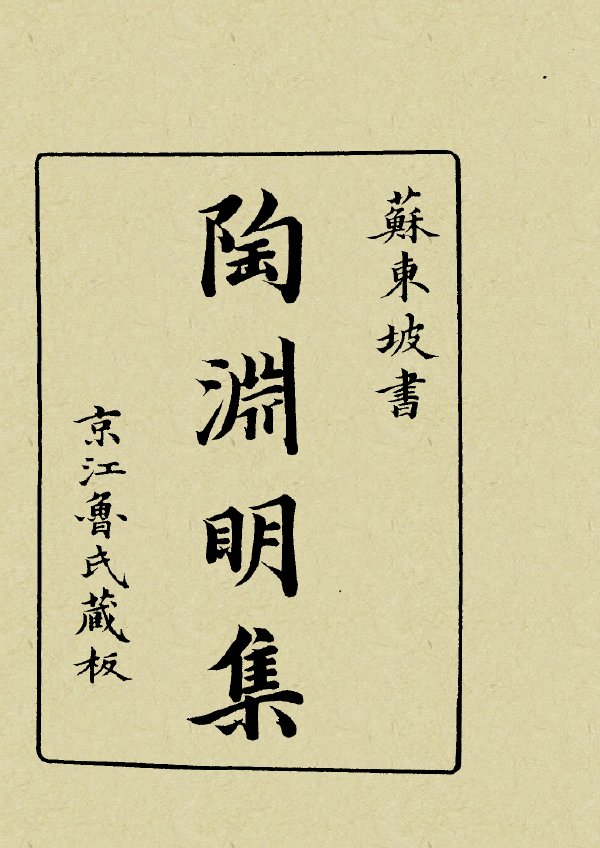 蘇東坡書
陶淵明集
京江魯氏藏板